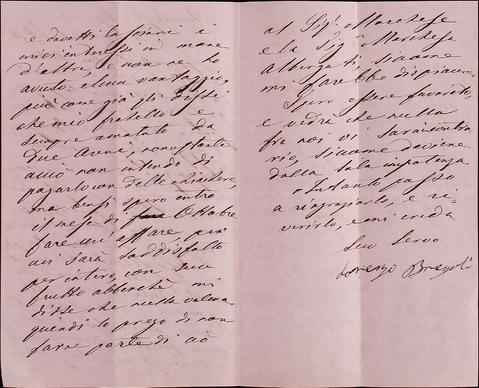 e dovetti lasciare i
miei interessi in mano
d'altri, e non ne ho
avuto alcun vantaggio,
più come già gli dissi
che mio fratello è
sempre amalato da
Due Anni, nonostante
ciò non intendo di
pagarlo con delle chiachere,
ma bensì spero entro
il mese di Ottobre
fare un affare per
cui sarà soddisfatto
per intero, con suo
frutto abbenchè mi
disse che nulla voleva
quindi lo prego di non
farne parte di ciò
al Sigr. Marchese
e la Sigra Marchesa
Albergati, siccome
mi farebbe dispiacere,
Spero essere favorito,
e vedrà che nulla
fra noi vi sarà contra
rio, siccome daviene
dalla sola impotenza
Intanto passo
a ringraziarlo, e ri-
verirlo, e mi creda
Suo Servo
Lorenzo